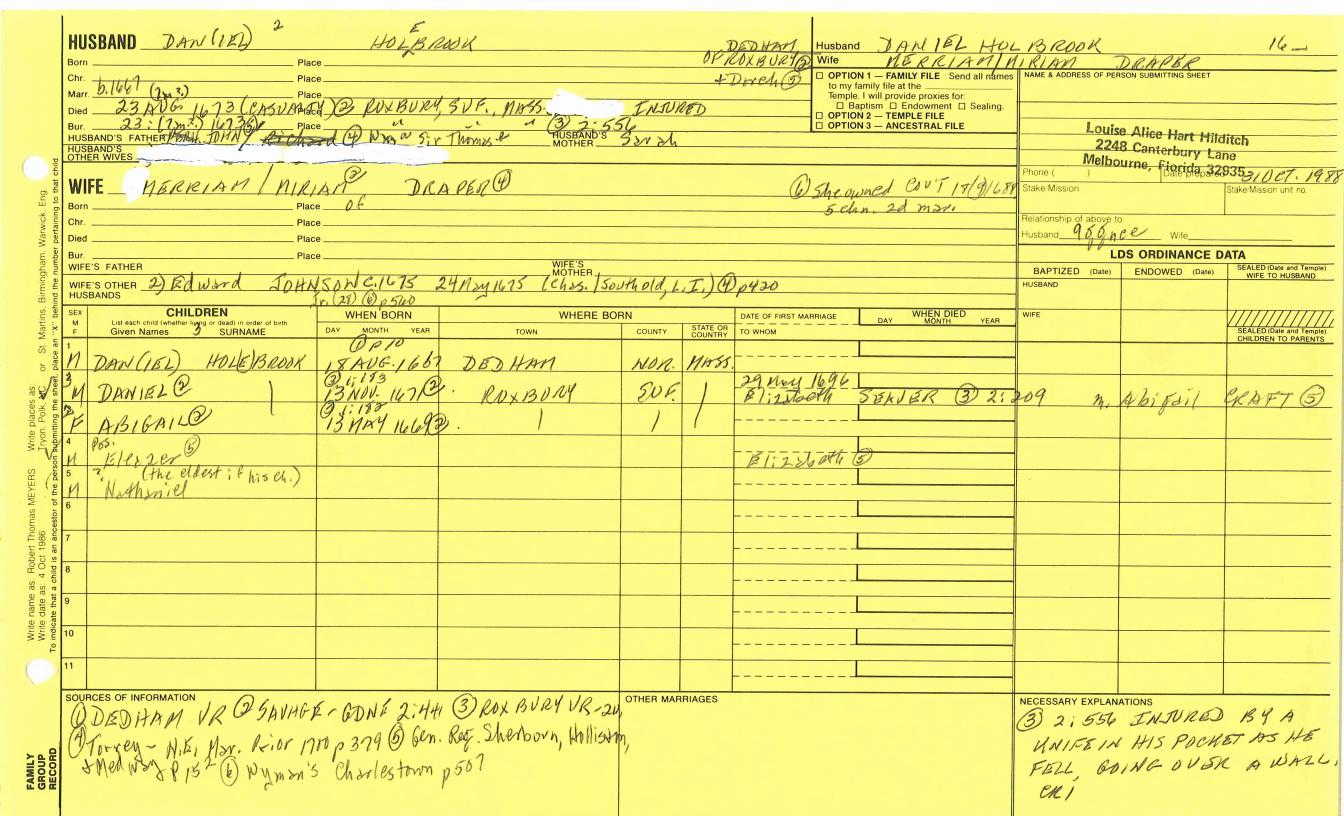 HUSBAND DAN(IEL) 2 HOLEBROOK DEDHAM OF ROXBURY
Born Place
Chr. Place + Dorch (5)
Marr. b.1667 Place
Died 23 AUG 1673 (CASUALTY) (2) Place ROXBURY, SUF., MASS. INJURED
Bur. Place (3) 2:556
HUSBAND'S FATHER JOHN / Richard (4) Wm Sir Thomas HUSBAND'S MOTHER Sarah
HUSBAND'S OTHER WIVES
WIFE MERRIAM / MIRIAM (2) DRAPER (4)
(6) She owned COVT
5 chn. 2d mar.
Born Place of
Chr. Place
Died Place
Bur. Place
WIFE'S FATHER WIFE'S MOTHER
WIFE'S OTHER HUSBANDS 2) Edward JOHNSON c.1675 24 May 1675 (Chas./Southold, L.I.) (4) p420
Jr. (28) (6) p560
Husband DANIEL HOLBROOK 16_
Wife MERRIAM/MIRIAM DRAPER
☐ OPTION 1 — FAMILY FILE Send all names
to my family file at the
Temple. I will provide proxies for:
☐ Baptism ☐ Endowment ☐ Sealing.
☐ OPTION 2 — TEMPLE FILE
☐ OPTION 3 — ANCESTRAL FILE
NAME & ADDRESS OF PERSON SUBMITTING SHEET
Louise Alice Hart Hilditch
2248 Canterbury Lane
Melbourne, Florida 32935
Phone ( ) Date prepared 31 OCT. 1988
Stake/Mission Stake/Mission unit no.
Relationship of above to
Husband Wife
LDS ORDINANCE DATA
BAPTIZED (Date) ENDOWED (Date) SEALED (Date and Temple) WIFE TO HUSBAND
HUSBAND
WIFE
SEALED (Date and Temple) CHILDREN TO PARENTS
SEX M F CHILDREN WHEN BORN WHERE BORN DATE OF FIRST MARRIAGE WHEN DIED
List each child (whether living or dead) in order of birth
Given Names 3 SURNAME DAY MONTH YEAR TOWN COUNTY STATE OR COUNTRY TO WHOM DAY MONTH YEAR
(1) p 10
1 M DAN(IEL) HOL(E)BROOK 18 AUG. 1667 DEDHAM NOR. MASS.
(2) 1:183 29 May 1696
M DANIEL (2) 13 NOV. 1671 (2) ROXBURY SUF. Elizabeth SEAVER (3) 2:209 m. Abigail CRAFT (5)
(2) 1:182
F ABIGAIL (2) 13 MAY 1669 (2)
4 pos.
M Elezer (5) Elizabeth (5)
5 ? (the eldest if his ch.)
M Nathaniel
6
7
8
9
10
11
SOURCES OF INFORMATION
(1) DEDHAM VR (2) SAVAGE - GDNE 2:441 (3) ROXBURY VR-
(4) Torrey - N.E. Mar. Prior 1700 p 379 (5) Gen. Reg. Sherborn, Holliston,
+ Medway P 152 (6) Wyman's Charlestown p 507
OTHER MARRIAGES
NECESSARY EXPLANATIONS
(3) 2:556 INJURED BY A
KNIFE IN HIS POCKET AS HE
FELL, GOING OVER A WALL.
FAMILY GROUP RECORD
Write name as: Robert Thomas MEYERS Write places as: Tryon, Polk, NC or St. Martins, Birmingham, Warwick, Eng.
Write date as: 4 Oct 1986
To indicate that a child is an ancestor of the person submitting the sheet, place an "X" behind the number pertaining to that child